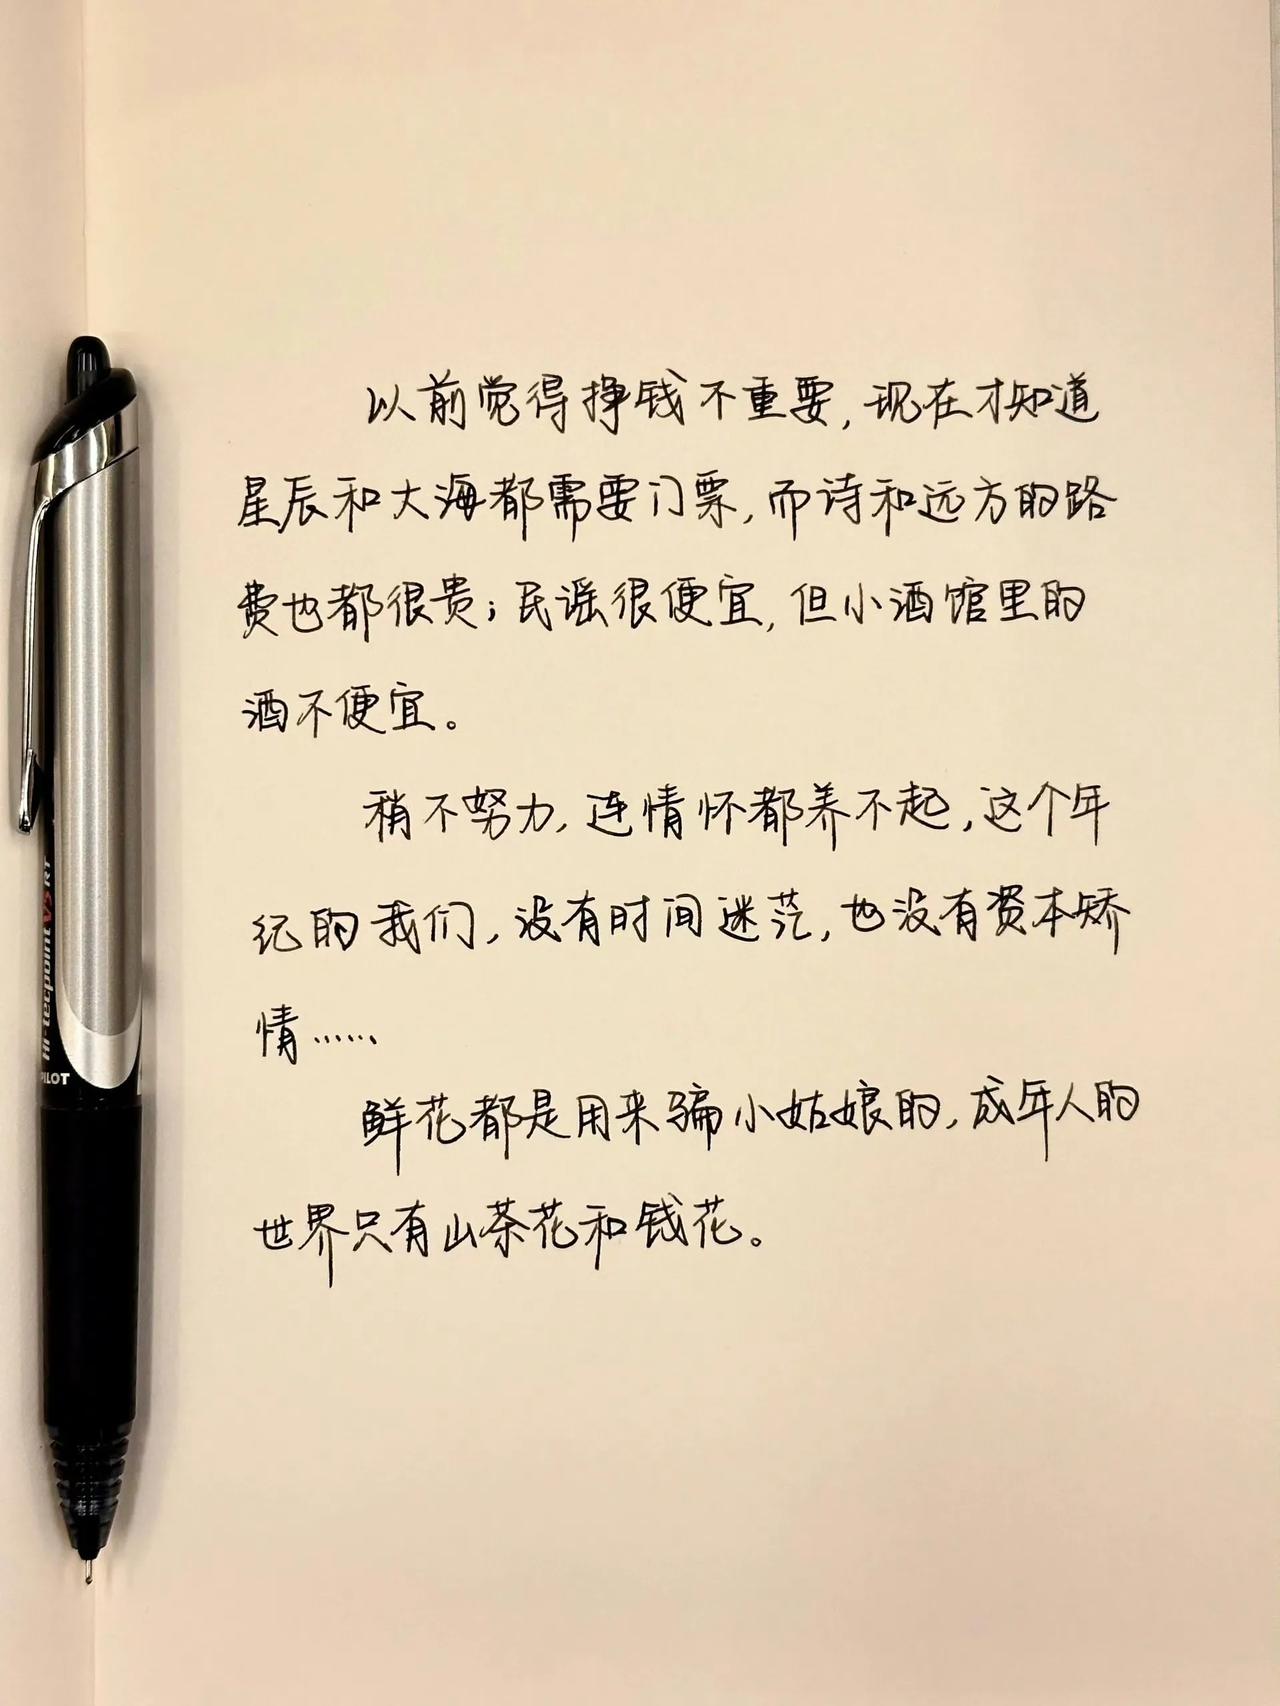 以前觉得挣钱不重要，现在才知道
星辰和大海都需要门票，而诗和远方的路
费也都很贵；民谣很便宜，但小酒馆里的
酒不便宜。
稍不努力，连情怀都养不起，这个年
纪的我们，没有时间迷茫，也没有资本矫
情……
鲜花都是用来骗小姑娘的，成年人的
世界只有山茶花和钱花。
Hi-tecpoint V5 RT
PILOT